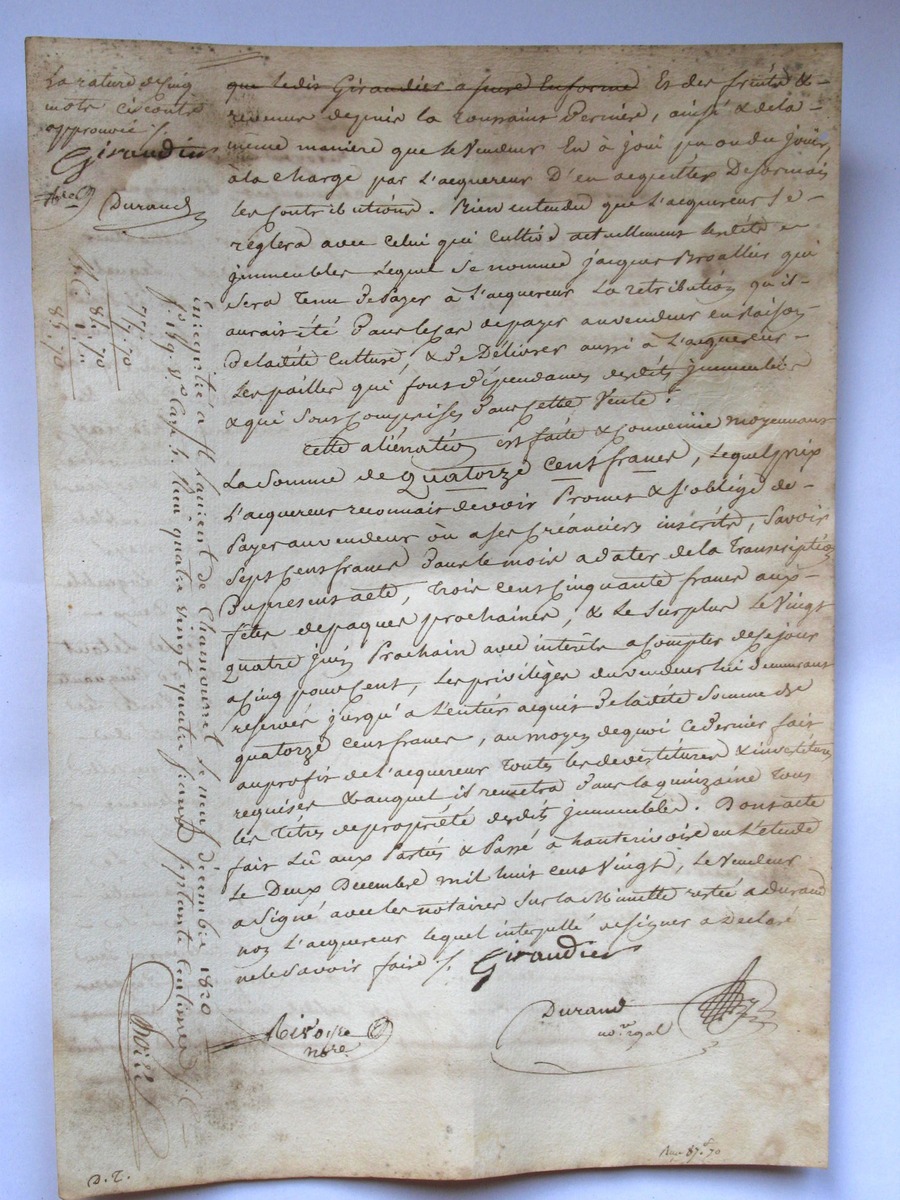 La rature de cinq
mots ci contre
approuvée /.
Giraudier
Durand
que ledit Giraudier a juré En forme Et des fruits &
revenus depuis la toussaint Derniere, ainsi & de la
même manière que le Vendeur En à joui pu ou du jouir,
à la charge par L'acquereur D'en acquitter Desormais
les Contributions. Bien entendu que L'acquereur Se
reglera avec Celui qui Cultive actuellement lesdits
jmmeubles Lequel Se nomme jacques qui
Sera Tenu De Payer à L'acquereur La retribution qu'il
aurait été Dans le Cas de payer au vendeur en Raison
De ladite Culture, & De Délivrer aussi à L'acquereur
Les pailles qui font Dépendances desdits jmmeubles
& qui Sont Comprises Dans Cette Vente.
Cette aliénation est faite & Convenue moyennant
La Somme de Quatorze Cents francs, Lequel prix
L'acquereur reconnait devoir Promet & S'oblige de
Payer au vendeur ou a ses Créanciers inscrits, Savoir
Sept Cents francs Dans le mois a dater de la Transcription
Du present acte, Trois Cent Cinquante francs aux
fêtes de paques prochaines, & Le Surplus Le Vingt
quatre juin Prochain avec interêts a Compter de Ce jour
a Cinq pour Cent, Les privilèges du vendeur lui Demeurant
reservés jusqu'a L'entier acquit De ladite Somme de
quatorze Cents francs, au moyen de quoi Ce dernier fait
au profit de L'acquereur Toutes les devestitures & investitures
requises & auquel il remettra Dans la quinzaine Tous
les Titres de propriété desdits jmmeubles. Dont acte
fait Lû aux Parties & Passé à hauterivoire en L'etude
Le Deux Decembre mil huit cent Vingt, Le Vendeur
a Signé avec les notaires Sur la Minutte restée a durand
nore L'acquereur lequel interpellé de Signer a Declaré
ne le Savoir faire /. Giraudier
Rivoire
nore
Durand
no.re royal
Enregistré à St Laurent de Chamousset le neuf décembre 1820
Reçu quatre vingt quatre francs Septante Centimes
77. 70
85. 70
D. T.
87. 70